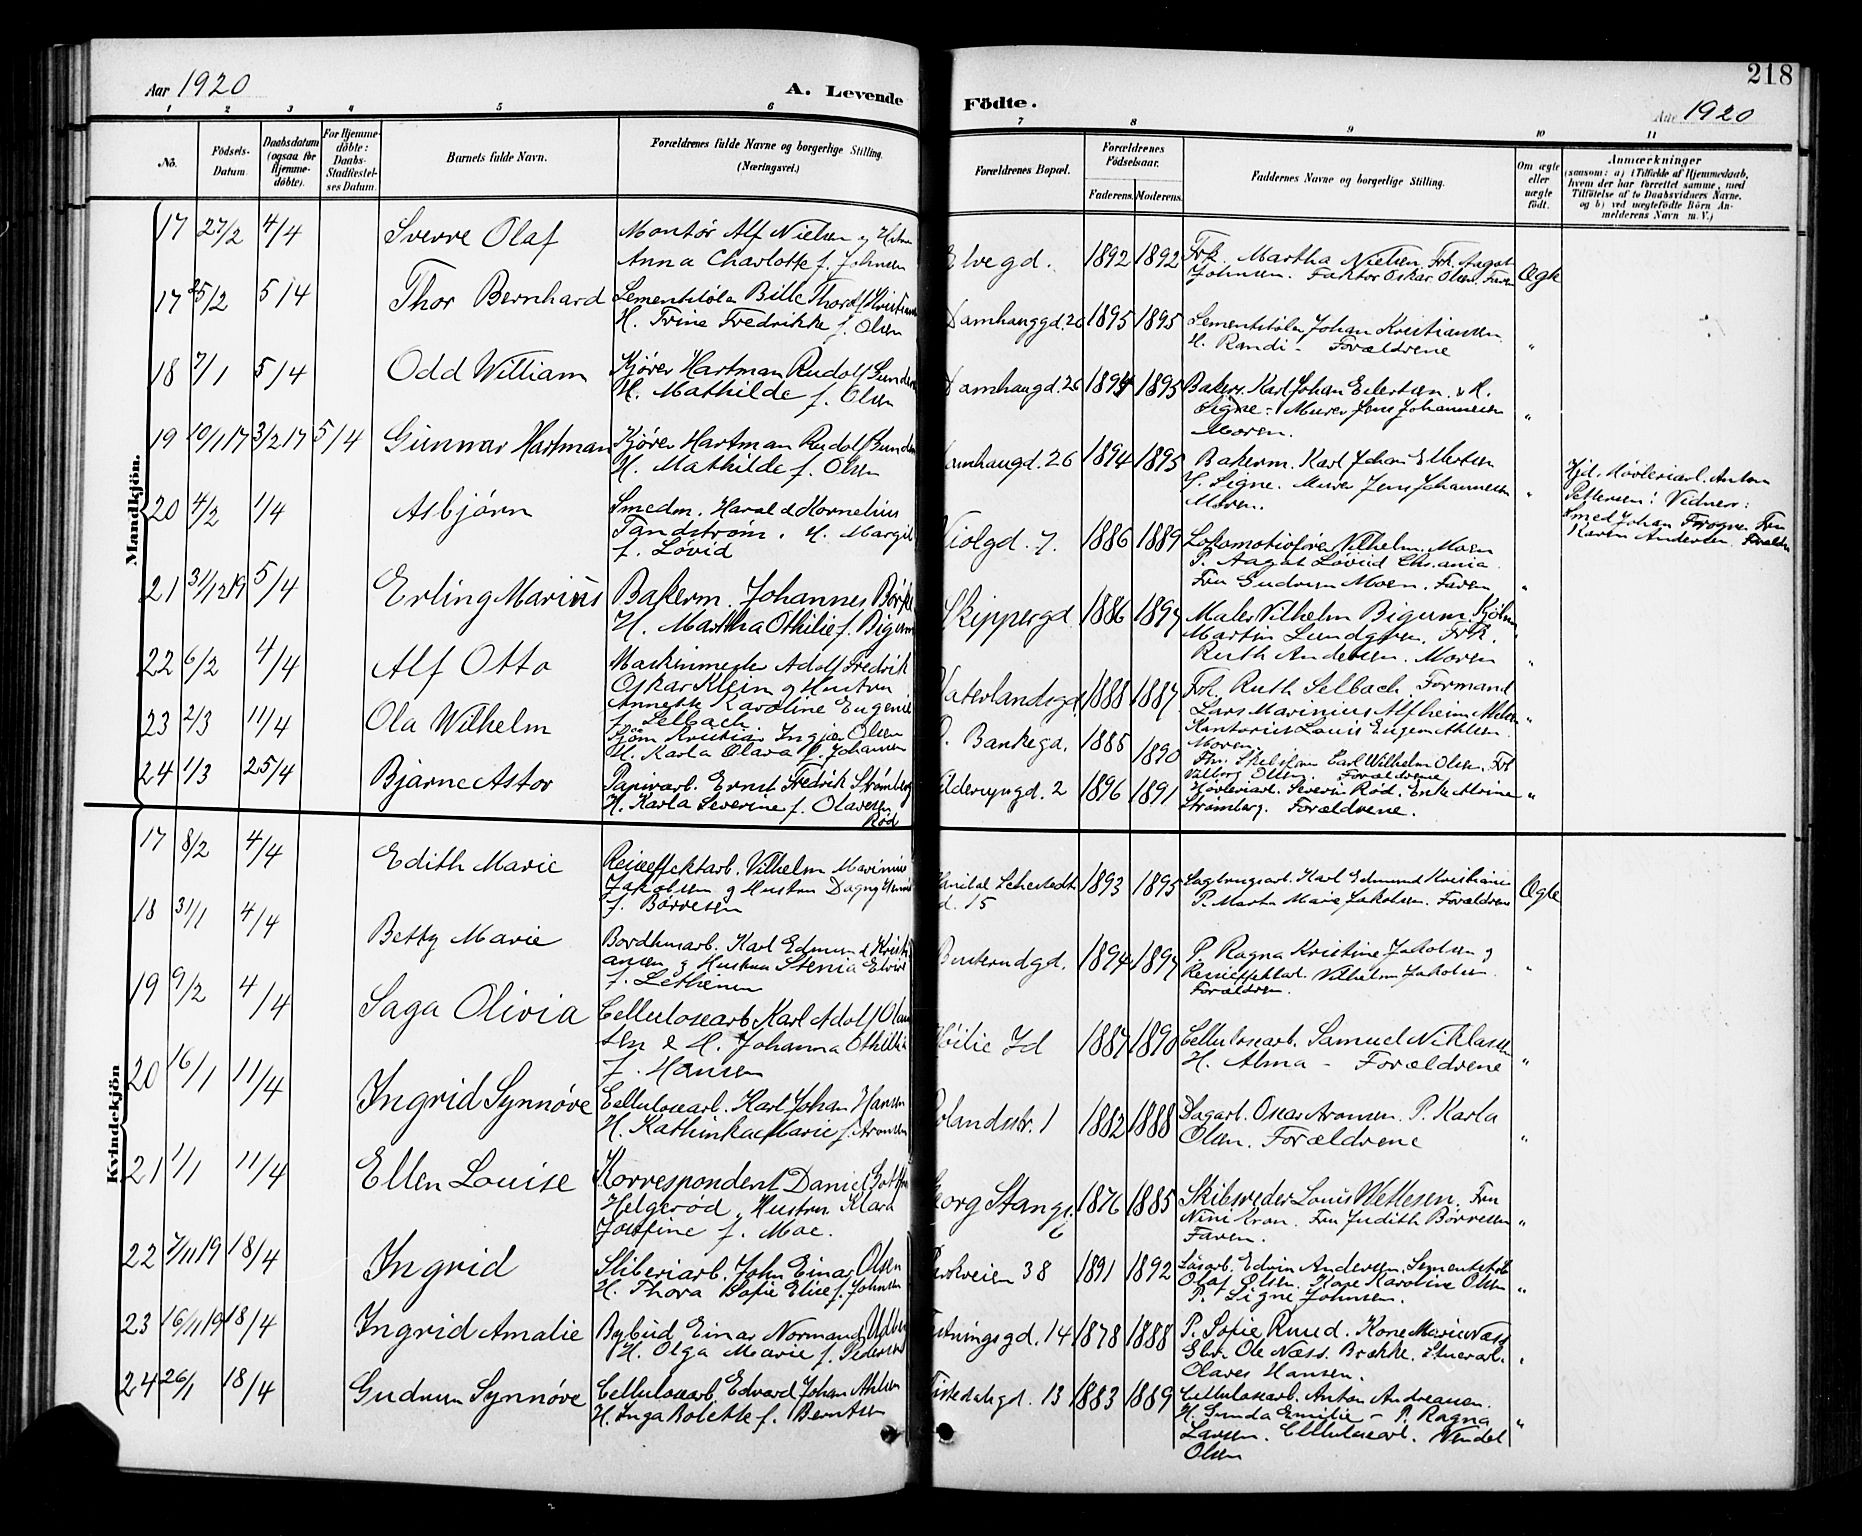 Aar 1920
A. Levende
Födte.
218
Aar 1920
1 2 3 4 5 6 7 8 9 10 11
No.
Födsels-Datum.
Daabsdatum (ogsaa for Hjemme-döbte).
For Hjemme-döbte: Daabs-Stadfæstel-ses Datum.
Barnets fulde Navn.
Forældrenes fulde Navne og borgerlige Stilling. (Næringsvei.)
Forældrenes Bopæl.
Forældrenes Födselsaar.
Faderens. Moderens.
Faddernes Navne og borgerlige Stilling.
Om ægte eller uægte födt.
Anmærkninger
(saasom: a) i Tilfælde af Hjemmedaab,
hvem der har forrettet samme, med
Tilföielse af to Daabsvidners Navne,
og b) ved uægtefödte Börn An-
melderens Navn m. V.)
Mandkjön.
17 27/2 4/4 Sverre Olaf
Montør Alf Nielsen og H
Anna Charlotte f. Johnsen
Elvegd. 1892 1892
Frk. Martha Nielsen. Frk. Aagot
Johnsen. Faktor Oskar Olsen. Faren
Ægte
17 25/2 5/4 Thor Bernhard
H. Trine Fredrikke f. Olsen
Damhauggd. 26 1895 1895
Sementstøber Johan Kristiansen
H. Randi - Forældrene "
18 7/1 5/4 Odd William
Kjører Hartman Rudolf
H. Mathilde f. Olsen
Damhaugd. 26 1894 1895
Bakerm. Karl Johan Eilertsen. & H.
Signe - Murer Jens Johannesen
Moren. "
19 10/1 17 3/2 17 5/4 Gunnar Hartman
Kjører Hartman Rudolf
H. Mathilde f. Olsen
Damhaugd. 26 1894 1895
Bakerm. Karl Johan Eilertsen
H. Signe. Murer Jens Johannesen
Moren. "
Hjd. Høvleriarb. Anton
Pettersen! Vidner:
Smed Johan Frogner Fru
Karen Andersen. Forældr
20 4/2 1/4 Asbjørn
Smedm. Harald Kornelius
Tandstrøm. H. Margit
f. Løvid
Violgd. 7. 1886 1889
Lokomotivfører Vilhelm Moen
P. Aagot Løvid Chr.ania.
Fru Gudrun Moen. Faren "
21 31/12 19 5/4 Erling Marius
Bakerm. Johannes Børke
H. Martha Othilie f. Bigum
Skippergd. 1886 1897
Maler Vilhelm Bigum. Kjøbm
Martin Lundgren. Frk.
Ruth Andersen. Moren "
22 6/2 4/4 Alf Otto
Maskinmester Adolf Fredrik
Oskar Klein og Hustru
Annette Karoline Eugenie
f. Selbach
Vaterlandsgd. 1888 1887
Frk. Ruth Selbach. Formand
Lars Marinius Alfheim
Kontorist Louis Eugen Ahlsen.
Moren. "
23 2/3 11/4 Ola Wilhelm
Sjøm Kristian Ingjar Olsen
H. Karla Olava f. Johansen
O. Bankegd. 1888 1890
Carl Wilhelm Olsen. Frk
Valborg Olsen. Forældrene
24 1/3 25/4 Bjarne Astor
Papirarb. Ernst Fredrik Strømberg
H. Karla Severine f. Olavesen
Rød
Oldermynd. 2 1896 1891
Høvleriarb. Severin Rød. Enke Alvine
Strømberg. Forældrene. "
Kvindekjön
17 8/2 4/4 Edith Marie
Reiseeffektarb. Vilhelm Marinius
Jakobsen og Hustru Dagny
f. Børresen
Hanibal Sehestedts
gd. 15 1893 1895
Sagbrugsarb. Karl Edmund Kristians
P. Martha Marie Jakobsen. Forældrene
Ægte
18 31/1 4/4 Betty Marie
Bordhusarb. Karl Edmund Kristi
ansen og Hustru Stenia
f. Lethenen
1894 1897
P. Ragna Kristine Jakobsen og
Reiseeffektarb. Vilhelm Jakobsen.
Forældren. "
19 9/2 4/4 Saga Olivia
Cellulosearb Karl Adolf Olau
sen & H. Johanna Othilie
f. Hansen
Høilie Id 1887 1890
Cellulosearb. Samuel Niklasen
H. Alma - Forældrene "
20 16/1 11/4 Ingrid Synnøve
Cellulosearb. Karl Johan Hansen
H. Kathinka Marie f. Aronsen
Rolandsstr. 1 1882 1888
Dagarb. Oscar Aronsen. P. Karla
Olsen. Forældrene "
21 1/1 11/4 Ellen Louise
Korrespondent Daniel
Helgerød. Hustru Klara
Josefine f. Moe.
Georg Stangs
6 1876 1885
Skibsreder Louis Mellesen. Fru
Nini Kran. Fru Judith Børresen
Faren. "
22 7/11 19 18/4 Ingrid
Sliberiarb. John Einar Olsen
H. Thora Sofie Elise f. Johnsen
Perkveien 38 1891 1892
Edvin Andersen. Sementstøb
Olaf Olsen. Kone Karoline Olsen
P. Signe Johnsen. "
23 16/11 19 18/4 Ingrid Amalie
Bybud Einar Normann
H. Olga Marie f. Pedersen
Festningsgd. 14 1878 1888
P. Sofie Ruud. Kone Marie Næss
Gbr. Ole Næss. Brække.
Olaves Hansen. "
24 26/1 18/4 Gudrun Synnøve
Cellulosearb Edvard Johan Ahlsen
H. Inga Bolette f. Berntsen
Tistedalsgd. 13 1883 1889
Cellulosearb. Anton Andreasen.
H. Gunda Emilie - P. Ragna
Larsen. Cellulosearb. Vendel
Olsen "